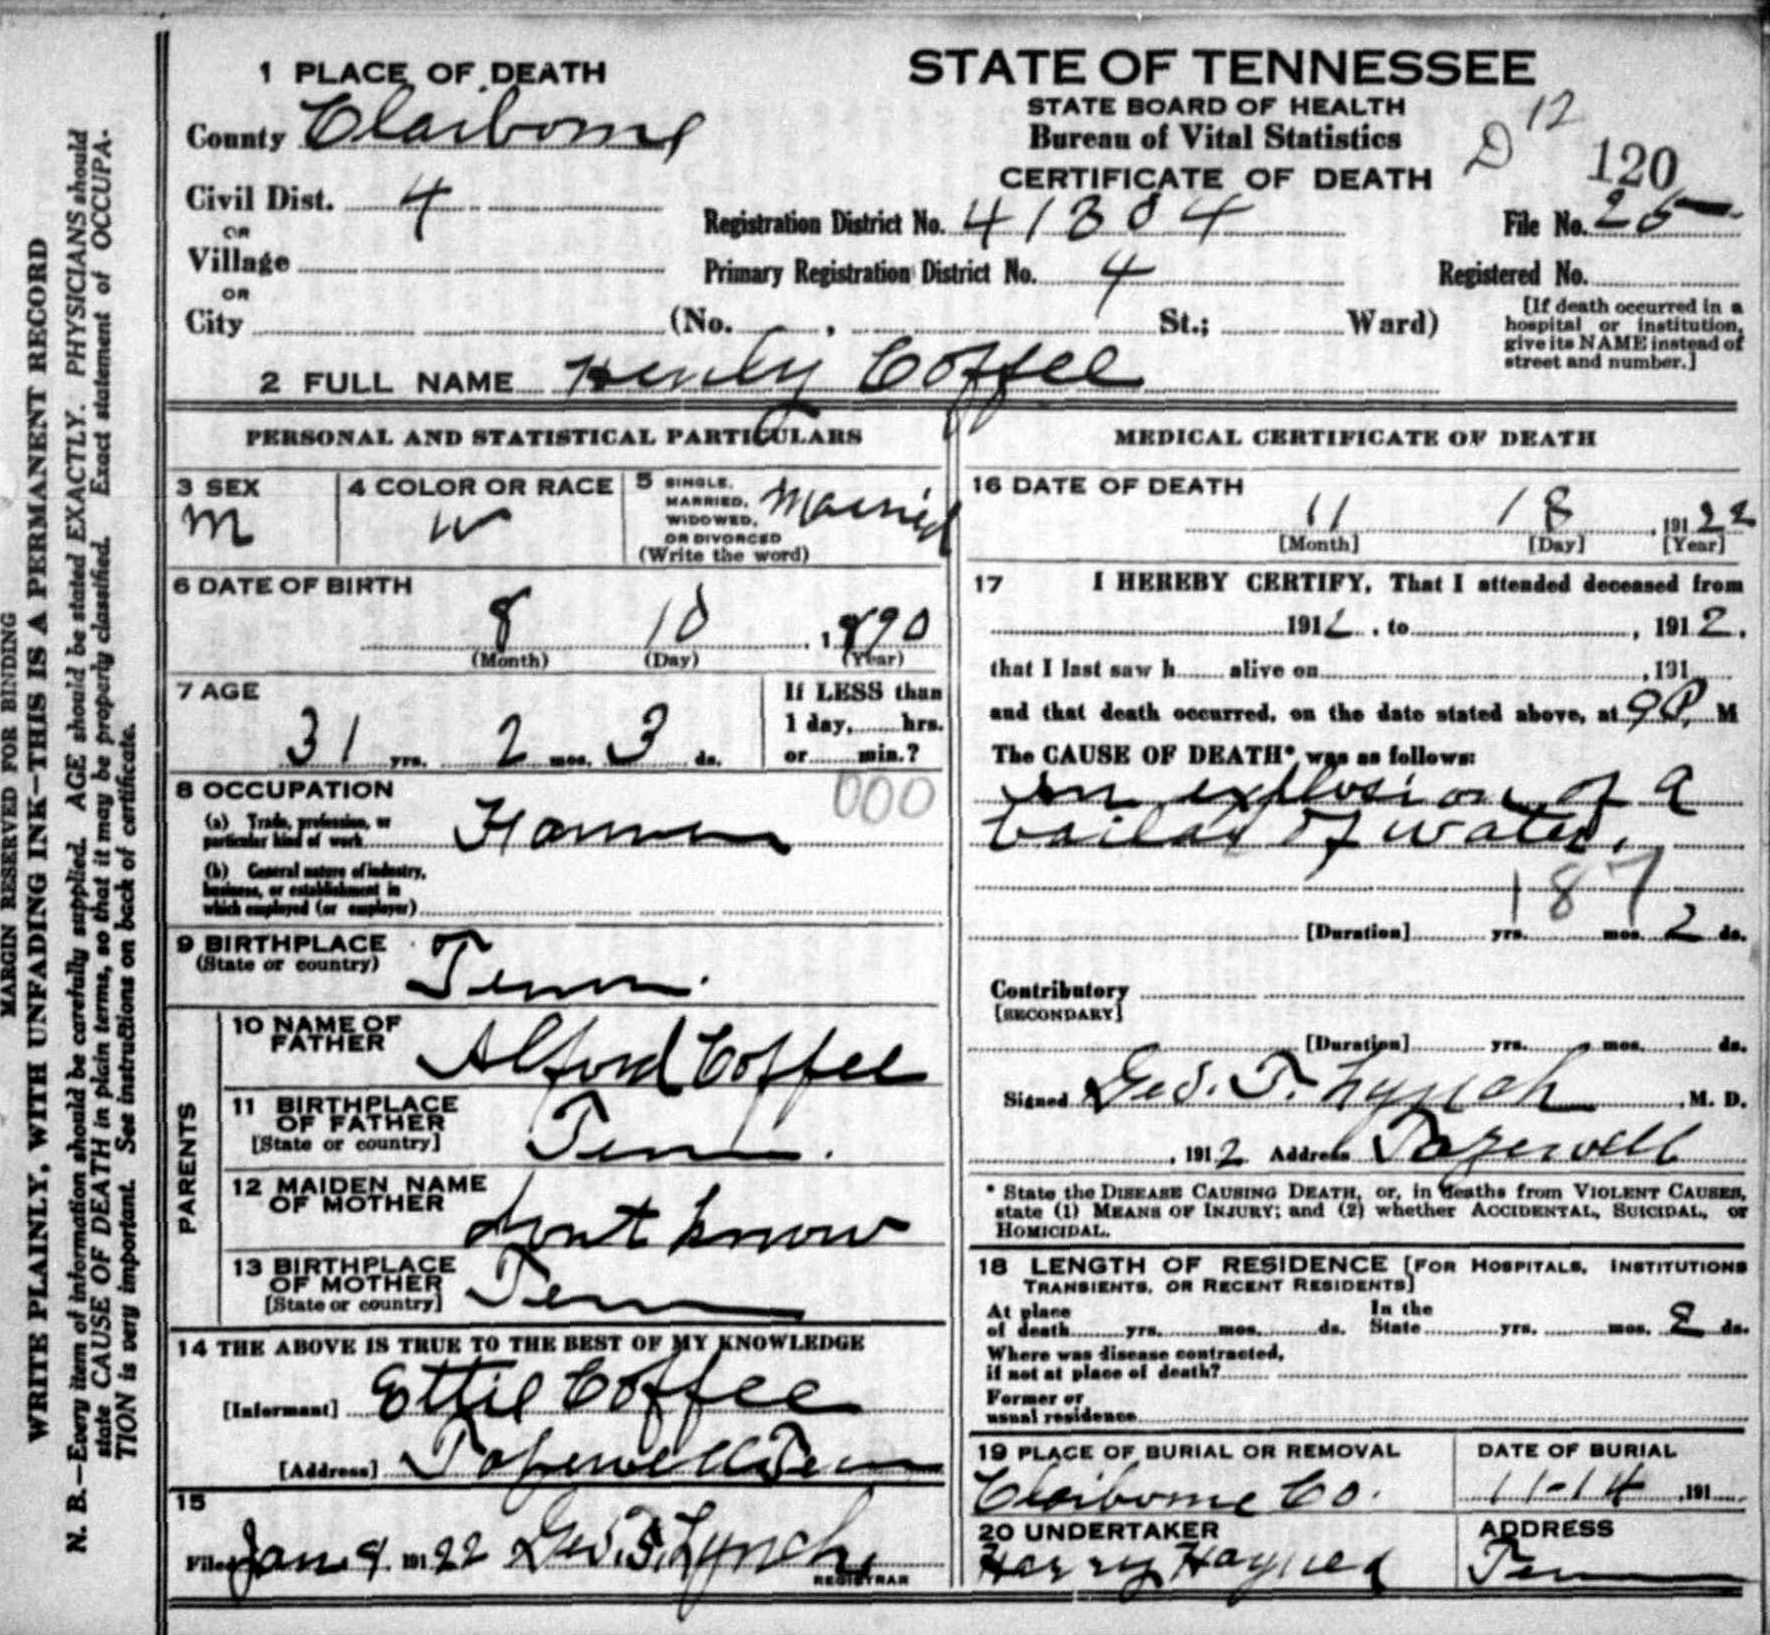 MARGIN RESERVED FOR BINDING
WRITE PLAINLY, WITH UNFADING INK—THIS IS A PERMANENT RECORD
N. B.—Every item of information should be carefully supplied. AGE should be stated EXACTLY. PHYSICIANS should
state CAUSE OF DEATH in plain terms, so that it may be properly classified. Exact statement of OCCUPA-
TION is very important. See instructions on back of certificate.
1 PLACE OF DEATH
County Claiborne
Civil Dist. 4
OR
Village
OR
City (No. , St.; Ward)
STATE OF TENNESSEE
STATE BOARD OF HEALTH
Bureau of Vital Statistics
CERTIFICATE OF DEATH
D 12
120
Registration District No. 41304
File No. 25
Primary Registration District No. 4
Registered No.
[If death occurred in a
hospital or institution,
give its NAME instead of
street and number.]
2 FULL NAME Henly Coffee
PERSONAL AND STATISTICAL PARTICULARS
3 SEX
M
4 COLOR OR RACE
W
5 SINGLE,
MARRIED,
WIDOWED,
OR DIVORCED
(Write the word)
Married
6 DATE OF BIRTH
8 10 , 1890
(Month) (Day) (Year)
7 AGE
31 yrs. 2 mos. 3 ds.
If LESS than
1 day, hrs.
or min.?
8 OCCUPATION
000
(a) Trade, profession, or
particular kind of work Farmer
(b) General nature of industry,
business, or establishment in
which employed (or employer)
9 BIRTHPLACE
(State or country) Tenn.
PARENTS
10 NAME OF
FATHER Alford Coffee
11 BIRTHPLACE
OF FATHER
[State or country] Tenn.
12 MAIDEN NAME
OF MOTHER dont know
13 BIRTHPLACE
OF MOTHER
[State or country] Tenn
14 THE ABOVE IS TRUE TO THE BEST OF MY KNOWLEDGE
[Informant] Ettie Coffee
[Address] Tazewell Tenn
15
Filed Jan 9 19122 Geo. T. Lynch,
REGISTRAR
MEDICAL CERTIFICATE OF DEATH
16 DATE OF DEATH
11 18 , 19122
[Month] [Day] [Year]
17 I HEREBY CERTIFY, That I attended deceased from
191 2, to , 191 2.
that I last saw h alive on , 191
and that death occurred, on the date stated above, at 9 P. M
The CAUSE OF DEATH* was as follows:
an explosion of a
of water.
187
[Duration] yrs. mos. 2 ds.
Contributory
[SECONDARY]
[Duration] yrs. mos. ds.
Signed Geo. T. Lynch , M. D.
, 191 2 Address Tazewell
* State the DISEASE CAUSING DEATH, or, in deaths from VIOLENT CAUSES,
state (1) MEANS OF INJURY; and (2) whether ACCIDENTAL, SUICIDAL, or
HOMICIDAL.
18 LENGTH OF RESIDENCE [FOR HOSPITALS, INSTITUTIONS
TRANSIENTS, OR RECENT RESIDENTS]
At place
of death yrs. mos. ds.
In the
State yrs. mos. 2 ds.
Where was disease contracted,
if not at place of death?
Former or
usual residence
19 PLACE OF BURIAL OR REMOVAL
Claiborne Co.
DATE OF BURIAL
11-14 , 191
20 UNDERTAKER
Harry Haynes
ADDRESS
Tenn